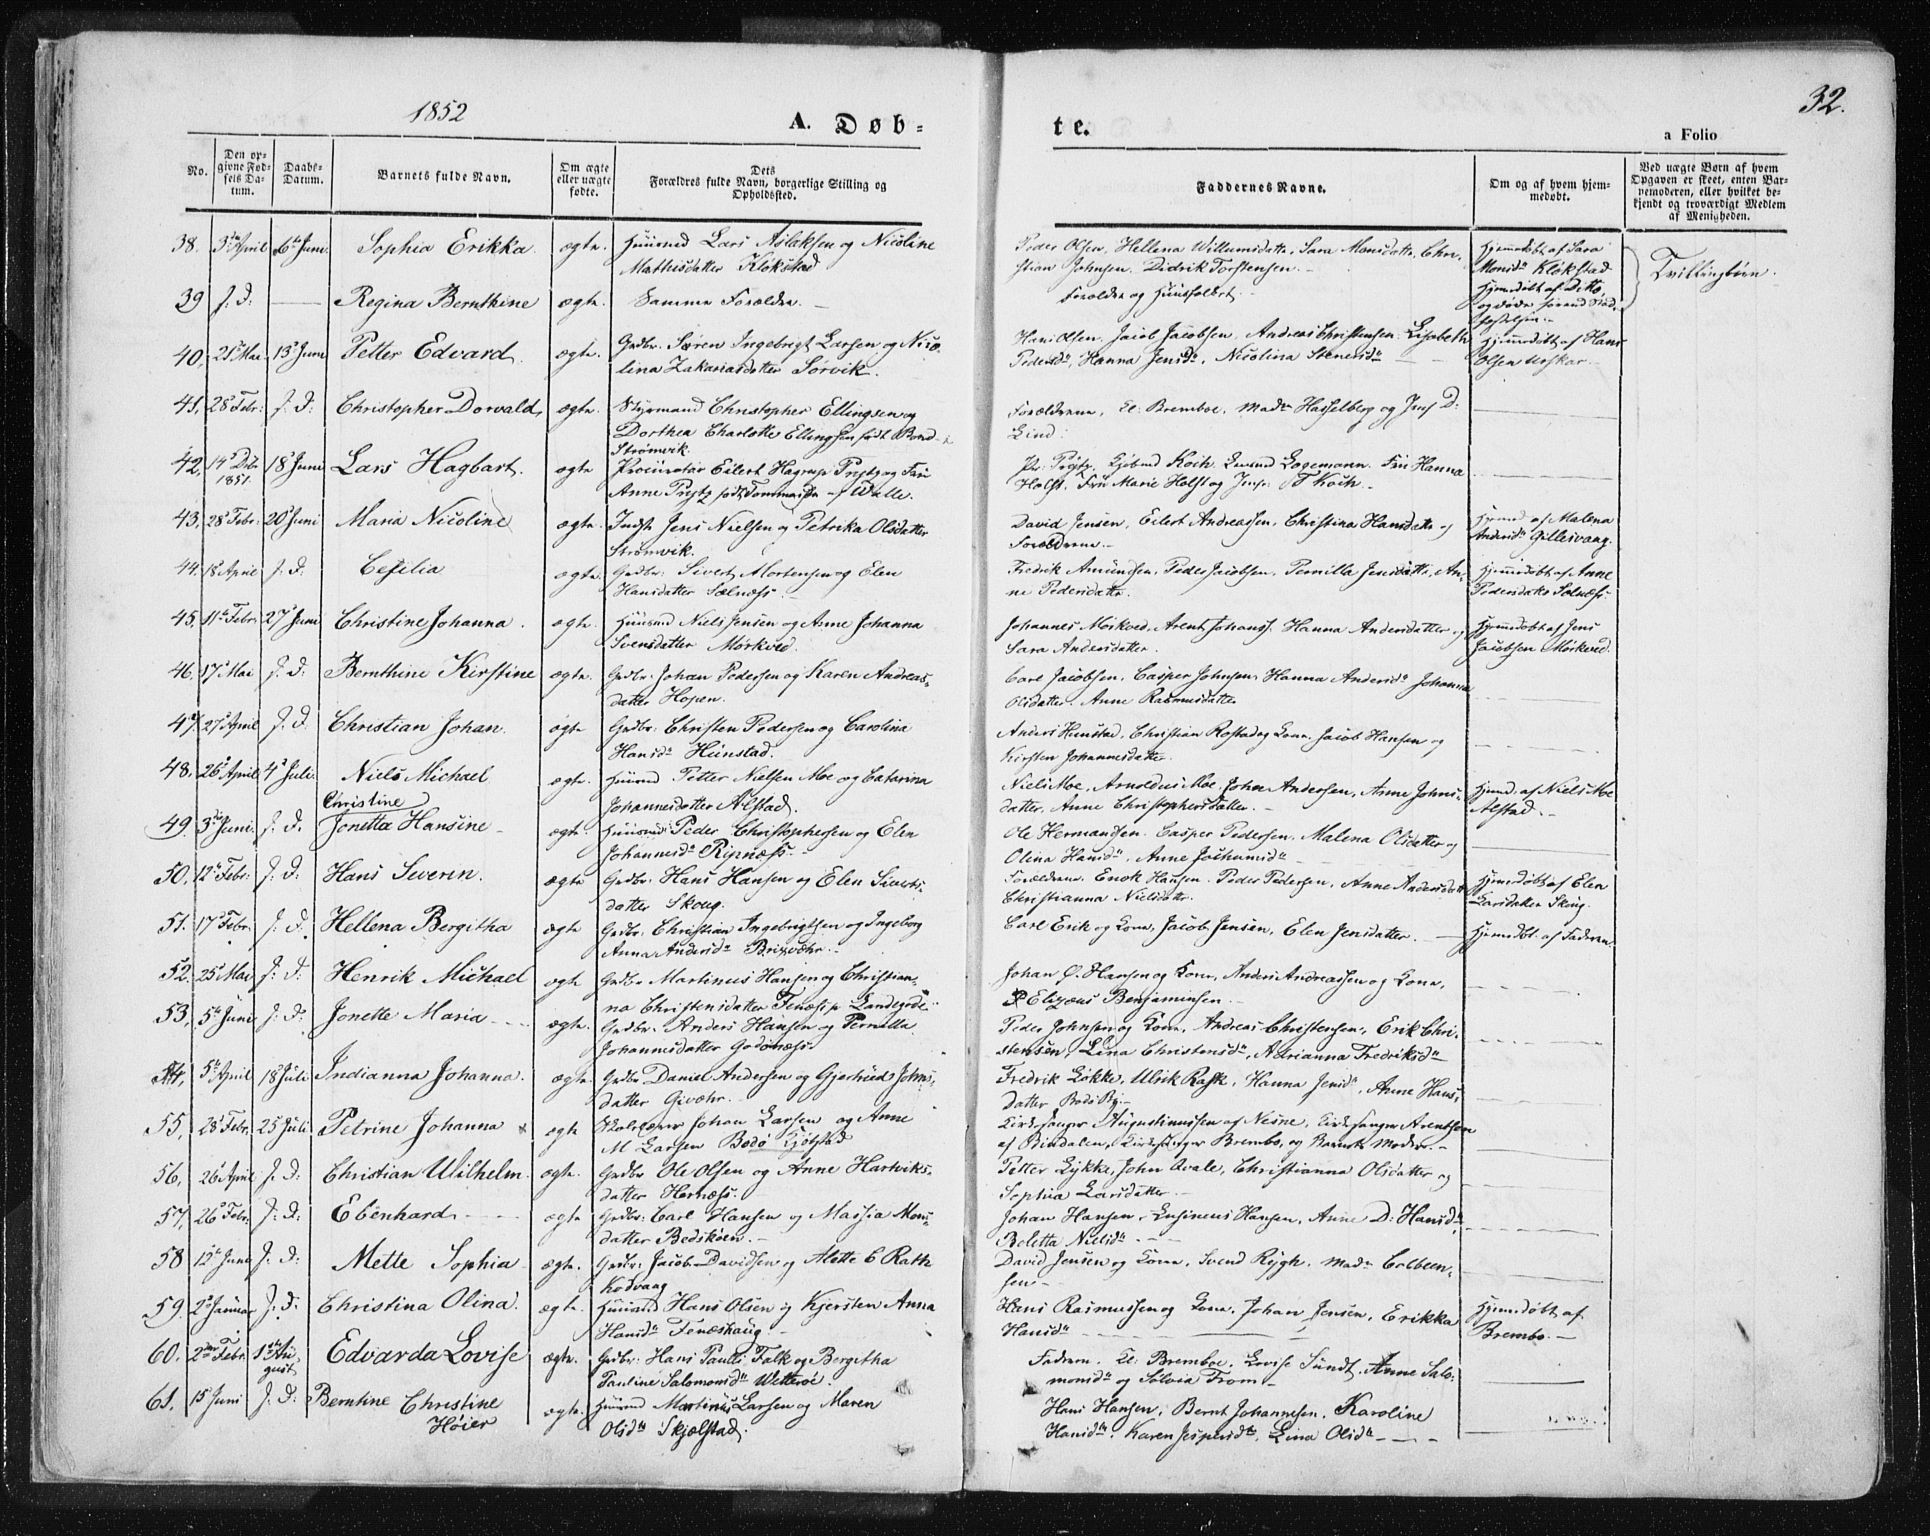 1852
A. Døb-
te.
32.
a Folio
No.
Den op-
givne Fød-
sels Da-
tum.
Daabs-
Datum.
Barnets fulde Navn.
Om ægte
eller uægte
fødte.
Dets
Forældres fulde Navn, borgerlige Stilling og
Opholdssted.
Faddernes Navne.
Om og af hvem hjem-
medøbt.
Ved uægte Børn af hvem
Opgaven er skeet, enten Bar-
nemoderen, eller hvilket be-
kjendt og troværdigt Medlem
af Menigheden.
38. 3die April 6te Juni Sophia Erikka ægte Huusmd Lars Aslaksen og Nicoline
Mathisdatter Kløkstad
Peder Olsen, Hellena Willumsdatter, Sara Monsdatter, Chri-
stian Johnsen, Didrik Torstensen
Hjemmedøbt af Sara
Monsdr Kløkstad
Tvillingbørn.
39 f. d. Regina Bernthine ægte. Samme Forældre.
Forældre og Huusfolket.
Hjemmedøbt af Ditto,
og døde førend Stad-
fæstelsen
40, 21de Mai 13de Juni Petter Edvard ægte. Grdbr. Søren Ingebrigt Larsen og Nico-
lina Zakariasdatter Sørvik.
Hans Olsen, Jacob Jacobsen, Andreas Christensen, Elisabeth
Pedersdr, Hanna Jensdr, Nicolina Stenersdr
Hjemmedøbt af Hans
Olsen
41, 28de Febr: f. d: Christopher Dorvald, ægte. Styrmand Christopher Ellingsen og
Dorthea Charlotte Ellingsen født Bord
Strømvik.
Forældrene, Kl: Bremboe, Madm Hasselberg og Jens D:
Lind
42, 14de Dcbr 1851. 18de Juni Lars Hagbart. ægte Procurator Eilert Hagrup Prytz og Fru
Anne Prytz født Tommasen Walle.
Pr: Prytz, Kjøbmd Koch, Fru Hanna
Holst, Fru Marie Holst og Jomfr: T Koch
43. 28de Febr: 20de Juni Maria Nicoline ægte. Indst Jens Nielsen og Petrika Olsdatter
Strømvik.
David Jensen, Eilert Andreassen, Christina Hansdatter og
Forældrene
Hjemmd af Malena
Andersdr Gillesvaag.
44. 18de April f. d. Cesilia ægte. Grdbr: Sivert Mortensen og Elen
Hansdatter Sølnæss.
Fredrik Amundsen, Peder Jacobsen, Pernilla Jensdatter, An-
ne Pedersdatter.
Hjemmedøbt af Anne
Pedersdatter Solnæss
45, 11te Febr: 27de Juni Christine Johanna ægte. Huusmd Niels Jensen og Anne Johanna
Svensdatter Mørkved.
Johannes Mørkved, Arent Johanss. Hanna Andersdatter og
Sara Andersdatter.
Hjemmedøbt af Jens
Jacobsen Mørkved.
46. 17de Mai f. d: Bernthine Kirstine ægte. Grdbr: Johan Pedersen og Karen Andreas-
datter Hopen.
Carl Jacobsen, Casper Johnsen, Hanna Andersdr Johanna
Olsdatter, Anne Rasmusdatter
47, 27de April f. d: Christian Johan. ægte Grdbr: Christen Pedersen og Carolina
Hansdr Hunstad.
Anders Hunstad, Christian Rostad og Kone, Jacob Hansen og
Kirsten Johannesdatter.
48, 26de April 4de Juli. Niels Michael ægte. Huusmd Petter Nielsen Moe og Catarina
Johannesdatter Alstad.
Niels Moe, Arnoldus Moe, John Andersen, Anne Johns-
datter, Anne Christophersdatter.
Hjemmd. af Niels Moe
Alstad.
49. 3die Juni f. d. Christine
Jonetta Hansine ægte. Huusmd Peder Christophersen og Elen
Johannesdr Ripnæss.
Ole Hermansen, Casper Pedersen, Malena Olsdatter og
Olina Hansdr, Anne Jochumsdr
50, 12te Febr: f. d: Hans Severin. ægte Grdbr: Hans Hansen og Elen Siverts-
datter Skoug.
Forældrene, Enok Hansen, Peder Pedersen, Anne Andersdatter
Christianna Nielsdatter.
Hjemmedøbt af Elen
Larsdatter Skoug.
51. 17de Febr: f. d: Hellena Bergitha ægte Grdbr: Christian Ingebrigtsen og Ingeborg
Anna Andersdr Brixvær.
Carl Erik og Kone, Jacob Jensen, Elen Jensdatter.
Hjemmedøbt. af Faderen.
52. 25de Mai f: d: Henrik Michael ægte Grdbr Martinus Hansen og Christian-
na Christensdatter Fenæss p Landegode
Johan Ø. Hansen og Kone, Anders Andreassen og Kone,
Elizæus Benjaminsen
53, 5te Juni f: d: Jonette Maria ægte. Grdbr. Anders Hansen og Pernilla
Johannesdatter Godønæss
Peder Johnsen og Kone, Andreas Christensen, Erik Chri-
stensen, Lina Christensdr, Adrianna Fredriksdr
54, 5te April 18de Juli Indianna Johanna. ægte. Grdbr Daniel Andersen og Gjertrued Johns-
datter Givær.
Fredrik Løkke, Ulrik Rask, Hanna Jensdr, Anne Hans-
datter Bodø By.
55, 28de Febr. 25de Juli Petrine Johanna ægte Skolelærer Johan Larsen og Anne
M Larsen Bodø
Kirkesanger Augustinussen af Nesne, Kirkesanger Arentsen
af Bindalen, Kirkesanger Brembo, og Barnets Moder.
56, 26de April f. d: Christian Wilhelm. ægte. Grdbr Ole Olsen og Anne Hartviks-
datter Hernæss.
Petter Lykke, John Qvale, Christianna Olsdatter og
Sophia Larsdatter
57, 26de Febr. f: d: Ebenhard ægte Grdbr: Carl Hansen og Massia Mons-
datter Bodskoen.
Johan Hansen, Eusineus Hansen, Anne D: Hansdr,
Beletta Nielsdr
58 12te Juni f: d: Mette Sophia ægte. Grdbr: Jacob Davidsen og Alette C Rath
Kodvaag
David Jensen og Kone, Svend Rygh, Madm Colbeen-
sen
59. 2de Januar f: d: Christina Olina. ægte. Huusmd Hans Olsen og Kjersten Anna
Hansdr Fenæshaug
Hans Rasmussen og Kone, Johan Jensen, Erikka
Hansdr
Hjemmedøbt af
Brembo.
60. 2den Febr. 1ste Au-
gust Edvarda Lovise ægte. Grdbr: Hans Paulli Falk og Bergitha
Pauline Salomonsdr Wetterøe.
Faderen, Kl: Bremboe, Lovise Sundt, Anne Salo-
monsdr og Sølvia From
61. 15 Juni f. d: Berntine Christine
Høier ægte. Huusmd Martinus Larsen og Maren
Olsdr Skjelstad.
Hans Hansen, Bernt Johannesen, Karoline
Hansdr, Karen Jespersdr, Lina Olsdr